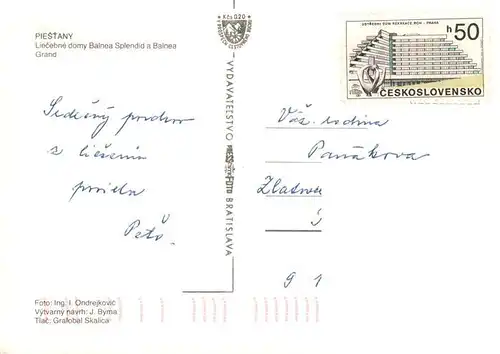 PIEŠŤANY
Liečebné domy Balnea Splendid a Balnea
Grand
Kčs 0,20
VYDAVATEĽSTVO BRATISLAVA
ÚSTŘEDNÍ DŮM REKREACE ROH - PRAHA
h 50
ČESKOSLOVENSKO
Srdečný pozdrav
z liečenia
posiela
Peťo.
Váž. rodina
Panáková
Zlatná
5
9 1
Foto: Ing. I. Ondrejkovič
Výtvarný návrh: J. Byrna
Tlač: Grafobal Skalica